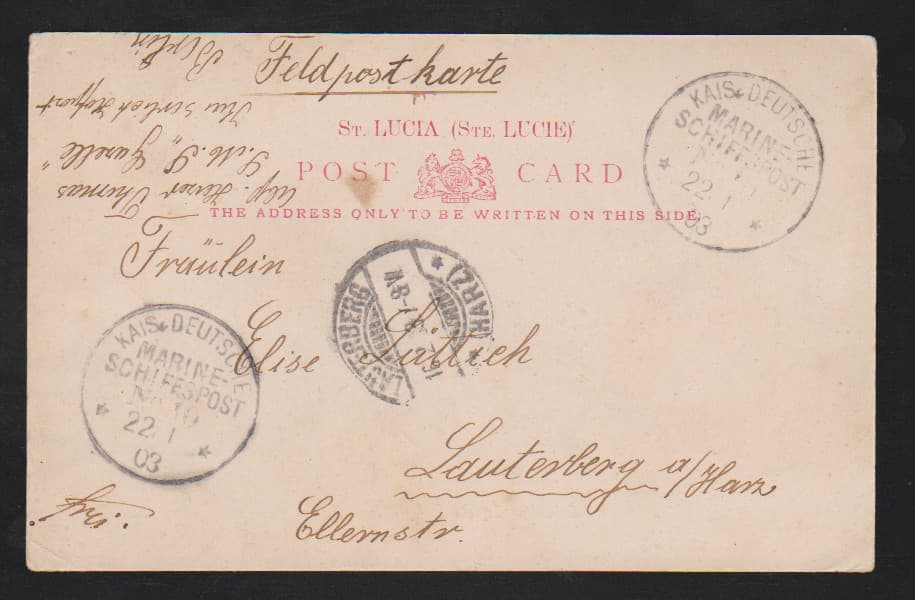 Feldpostkarte
ST. LUCIA (STE. LUCIE)
POST CARD
THE ADDRESS ONLY TO BE WRITTEN ON THIS SIDE.
Fräulein
Elise
Lauterberg a/Harz
Ellernstr.
frei.
Berlin
S.M.S. „Gazelle"
Thomas
KAIS. DEUTSCHE
MARINE-
SCHIFFSPOST
22 1
03
KAIS. DEUTSCHE
MARINE-
SCHIFFSPOST
No 10
22 1
03
LAUTERBERG
(HARZ)